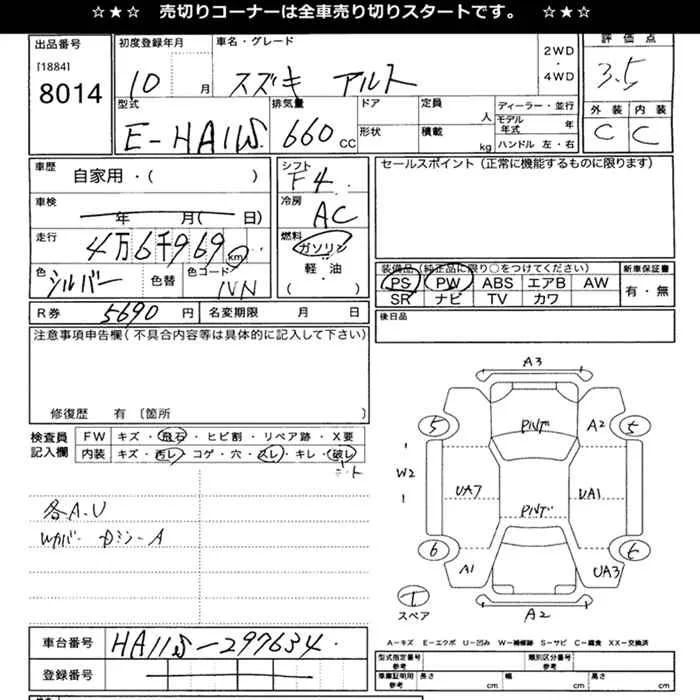 ☆★☆ 売切りコーナーは全車売り切りスタートです。 ☆★☆
出品番号 初度登録年月 車名・グレード 2WD・4WD 評価点
[1884]
8014 10 月 スズキ アルト 3.5
型式 排気量 ドア 定員 人 ディーラー・並行 外装 内装
E-HA11S 660cc 形状 積載 kg モデル年式 年 C C
ハンドル 左・右
車歴 自家用・( ) シフト F4 セールスポイント(正常に機能するものに限ります)
車検 年 月( 日) 冷房 AC
走行 4万6千969km 燃料 ガソリン
色 シルバー 色替 色コード 軽・油
( )
装備品(純正品に限り○をつけてください) 新車保証書
PS PW ABS エアB AW 有・無
SR ナビ TV カワ
R券 5690 円 名変期限 月 日 後日品
注意事項申告欄(不具合内容等は具体的に記入して下さい)
修復歴 有 〔箇所 〕
検査員記入欄 FW キズ・飛石・ヒビ割・リペア跡・X要
内装 キズ・汚レ・コゲ・穴・スレ・キレ・破レ
各A.U
A3
5 PINT A2 5
W2
UA7 UA1
PINT
6 A1 UA3
T
スペア A2
A−キズ E−エクボ U−凹み W−補修跡 S−サビ C−腐食 XX−交換済
車台番号 HA11S-297634
登録番号
型式指定番号 参考 類別区分番号 参考
車庫証明用 参考 長さ cm 幅 cm 高さ cm